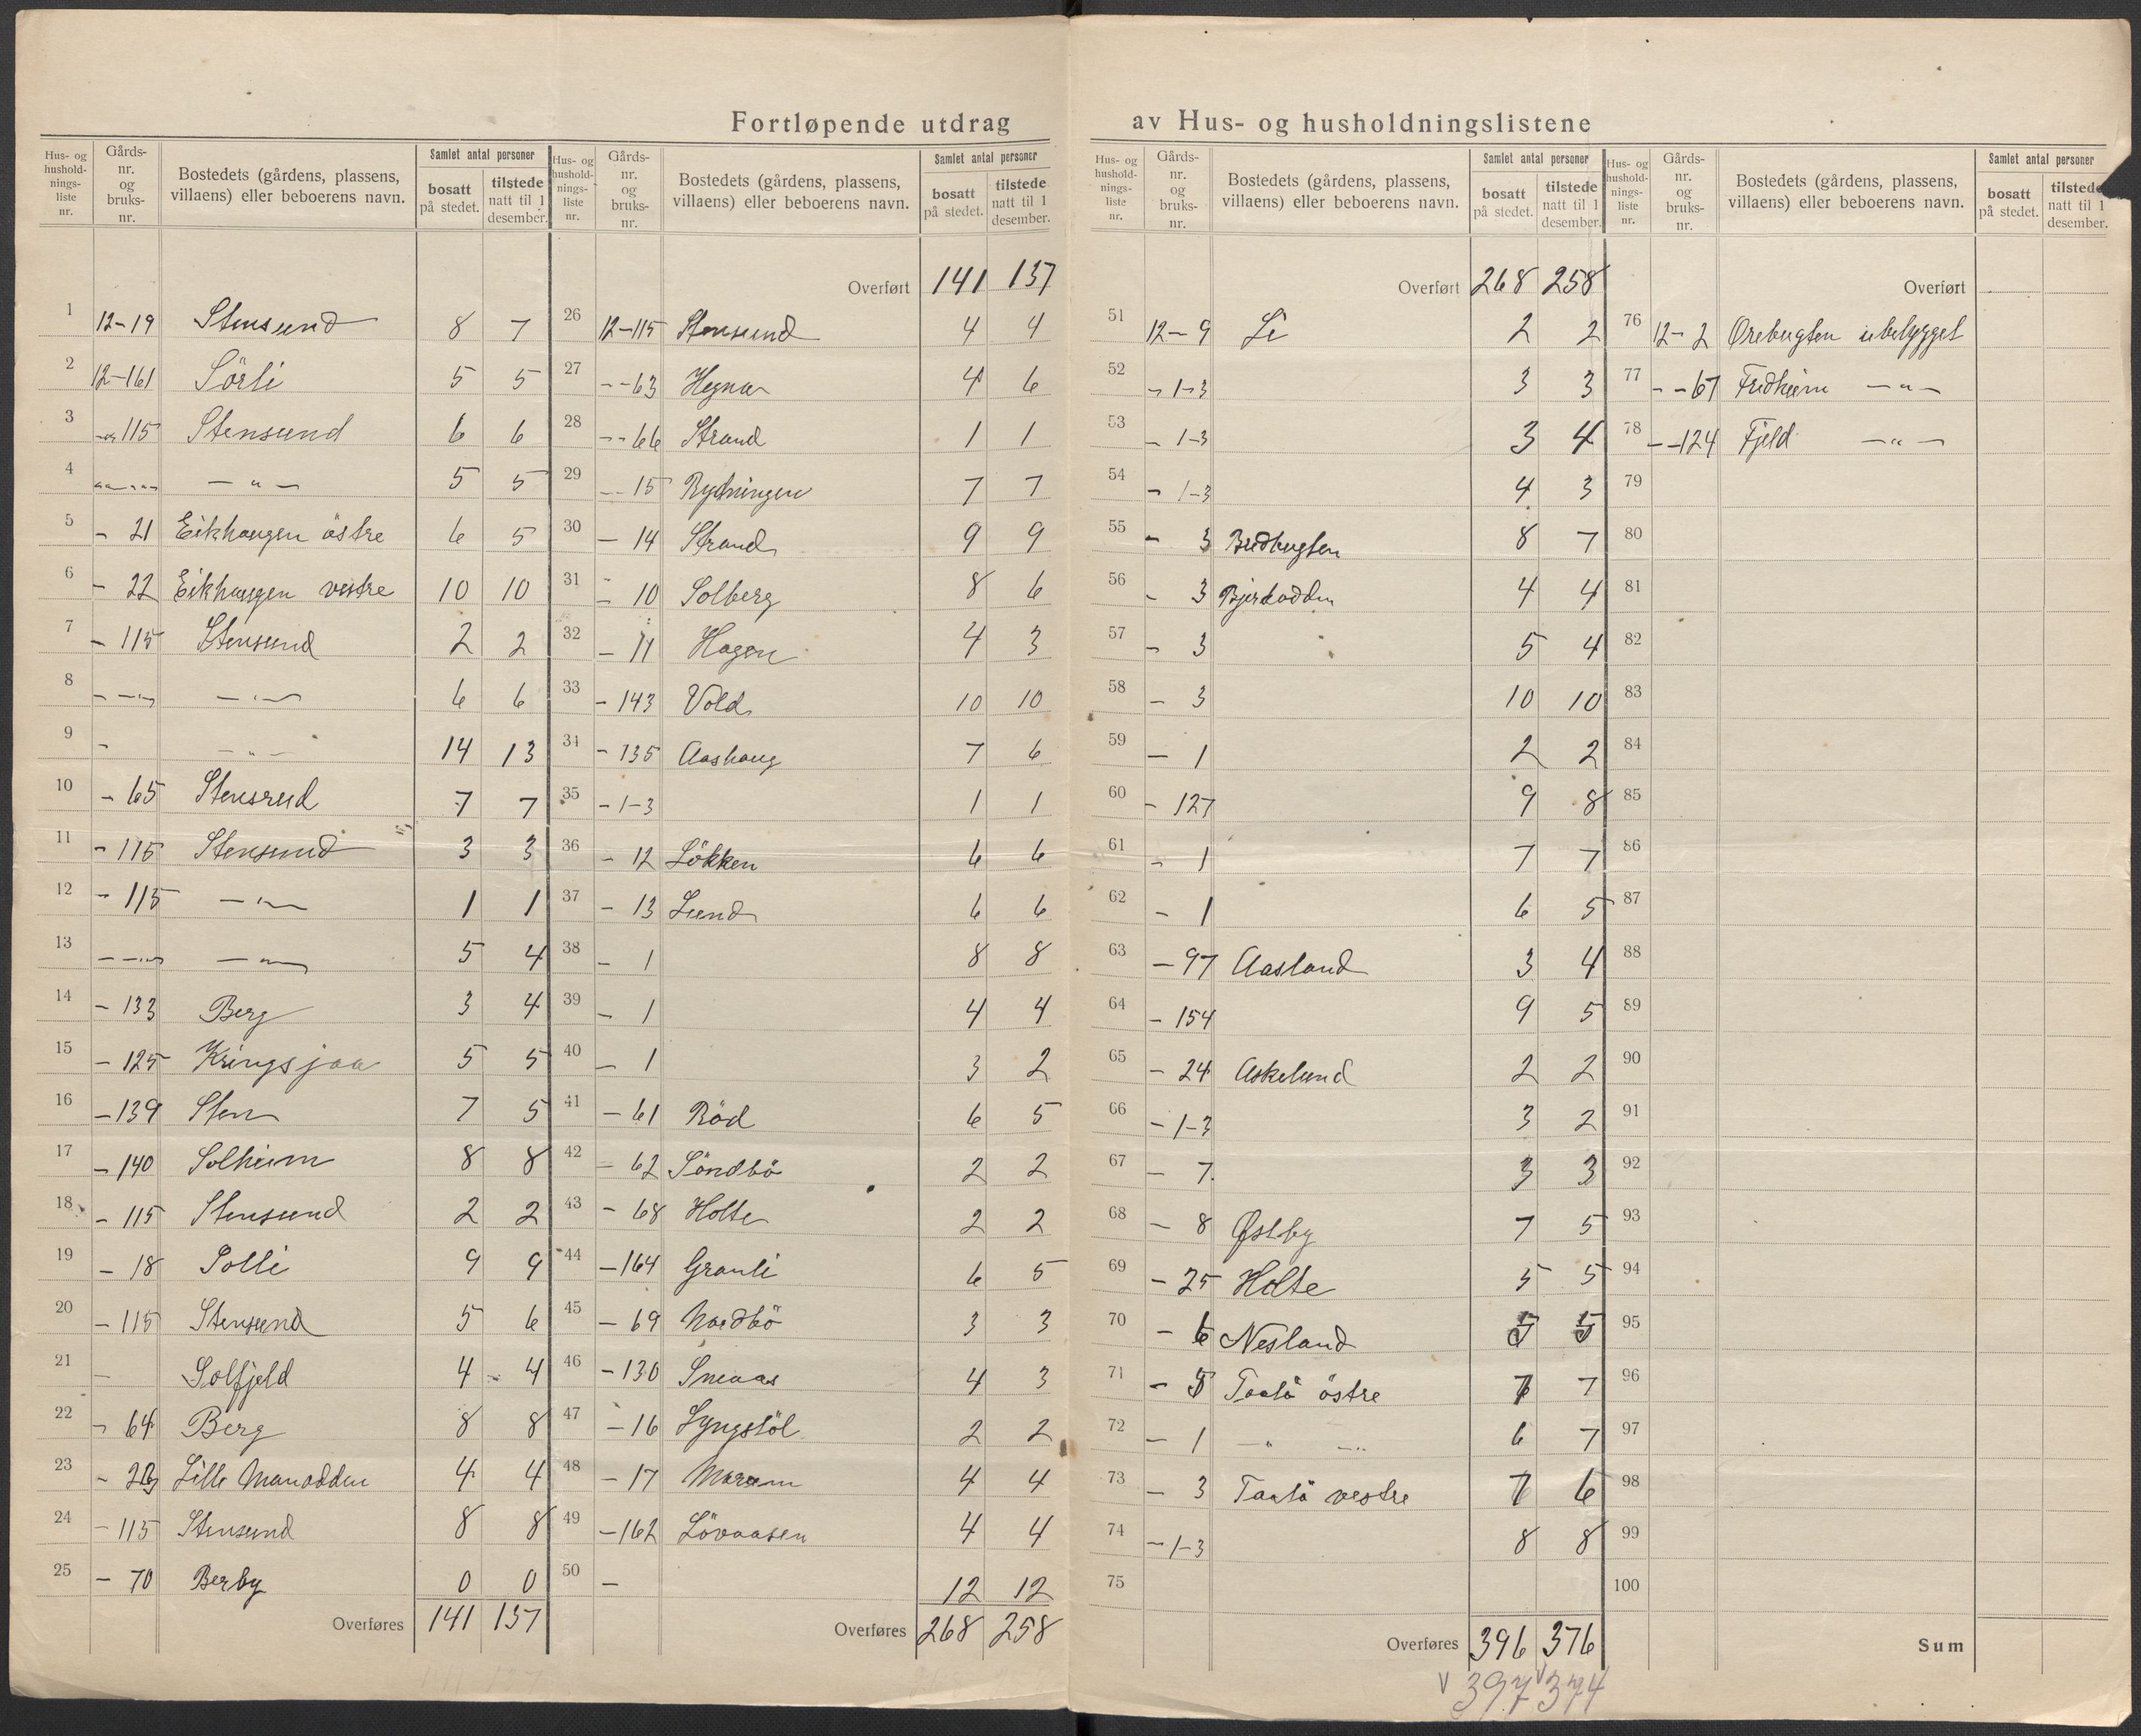 Fortløpende utdrag av Hus- og husholdningslistene
Hus- og hushold-nings-liste nr. | Gårds-nr. og bruks-nr. | Bostedets (gårdens, plassens, villaens) eller beboerens navn. | Samlet antal personer bosatt på stedet. | tilstede natt til 1 desember.
1 12-19 Stensund 8 7
2 12-161 Sörli 5 5
3 -„-115 Stensund 6 6
4 -„- -„- 5 5
5 - 21 Eikhaugen östre 6 5
6 - 22 Eikhaugen vestre 10 10
7 - 115 Stensund 2 2
8 - -„- -„- 6 6
9 - -„- 14 13
10 - 65 Stensrud 7 7
11 - 115 Stensund 3 3
12 - 115 -„- 1 1
13 - -„- -„- 5 4
14 - 133 Berg 3 4
15 - 125 Kringsjaa 5 5
16 - 139 Sten 7 5
17 - 140 Solheim 8 8
18 - 115 Stensund 2 2
19 - 18 Solli 9 9
20 - 115 Stensund 5 6
21 - Solfjeld 4 4
22 - 64 Berg 8 8
23 - Lille Manodden 4 4
24 - 115 Stensund 8 8
25 - 70 Berby 0 0
Overføres 141 137
Hus- og hushold-nings-liste nr. | Gårds-nr. og bruks-nr. | Bostedets (gårdens, plassens, villaens) eller beboerens navn. | Samlet antal personer bosatt på stedet. | tilstede natt til 1 desember.
Overført 141 137
26 12-115 Stensund 4 4
27 - -63 Hegna 4 6
28 - -66 Strand 1 1
29 - - 15 Rydningen 7 7
30 - 14 Strand 9 9
31 - 10 Solberg 8 6
32 - 11 Hagen 4 3
33 - 143 Vold 10 10
34 - 135 Aashaug 7 6
35 - 1-3 1 1
36 - 12 Lökken 6 6
37 - 13 Lund 6 6
38 - 1 8 8
39 - 1 4 4
40 - 1 3 2
41 - 61 Röd 6 5
42 - 62 Söndbö 2 2
43 - 68 Holte 2 2
44 -164 Granli 6 5
45 - 69 Nordbö 3 3
46 -130 Sneaas 4 3
47 - 16 Lyngstöl 2 2
48 - 17 4 4
49 -162 Lövaasen 4 4
50 - 12 12
Overføres 268 258
Hus- og hushold-nings-liste nr. | Gårds-nr. og bruks-nr. | Bostedets (gårdens, plassens, villaens) eller beboerens navn. | Samlet antal personer bosatt på stedet. | tilstede natt til 1 desember.
Overført 268 258
51 12- 9 Li 2 2
52 - 1-3 3 3
53 - 1-3 3 4
54 - 1-3 4 3
55 - 3 Budbugten 8 7
56 - 3 Bjerkodden 4 4
57 - 3 5 4
58 - 3 10 10
59 - 1 2 2
60 - 127 9 8
61 - 1 7 7
62 - 1 6 5
63 - 97 Aasland 3 4
64 - 154 9 5
65 - 24 Askelund 2 2
66 - 1-3 3 2
67 - 7 3 3
68 - 8 Østby 7 5
69 - 25 Holte 5 5
70 - 6 Nesland 5 5
71 - 5 Taatö östre 7 7
72 - 1 -„- -„- 6 7
73 - 3 Taatö vestre 7 6
74 - 1-3 8 8
75
Overføres 396 376
V 397 V 374
Hus- og hushold-nings-liste nr. | Gårds-nr. og bruks-nr. | Bostedets (gårdens, plassens, villaens) eller beboerens navn. | Samlet antal personer bosatt på stedet. | tilstede natt til 1 desember.
Overført
76 12- 2 Orebugten ubebygget
77 - -67 Fredheim -„-
78 - -124 Fjeld -„-
79
80
81
82
83
84
85
86
87
88
89
90
91
92
93
94
95
96
97
98
99
100
Sum